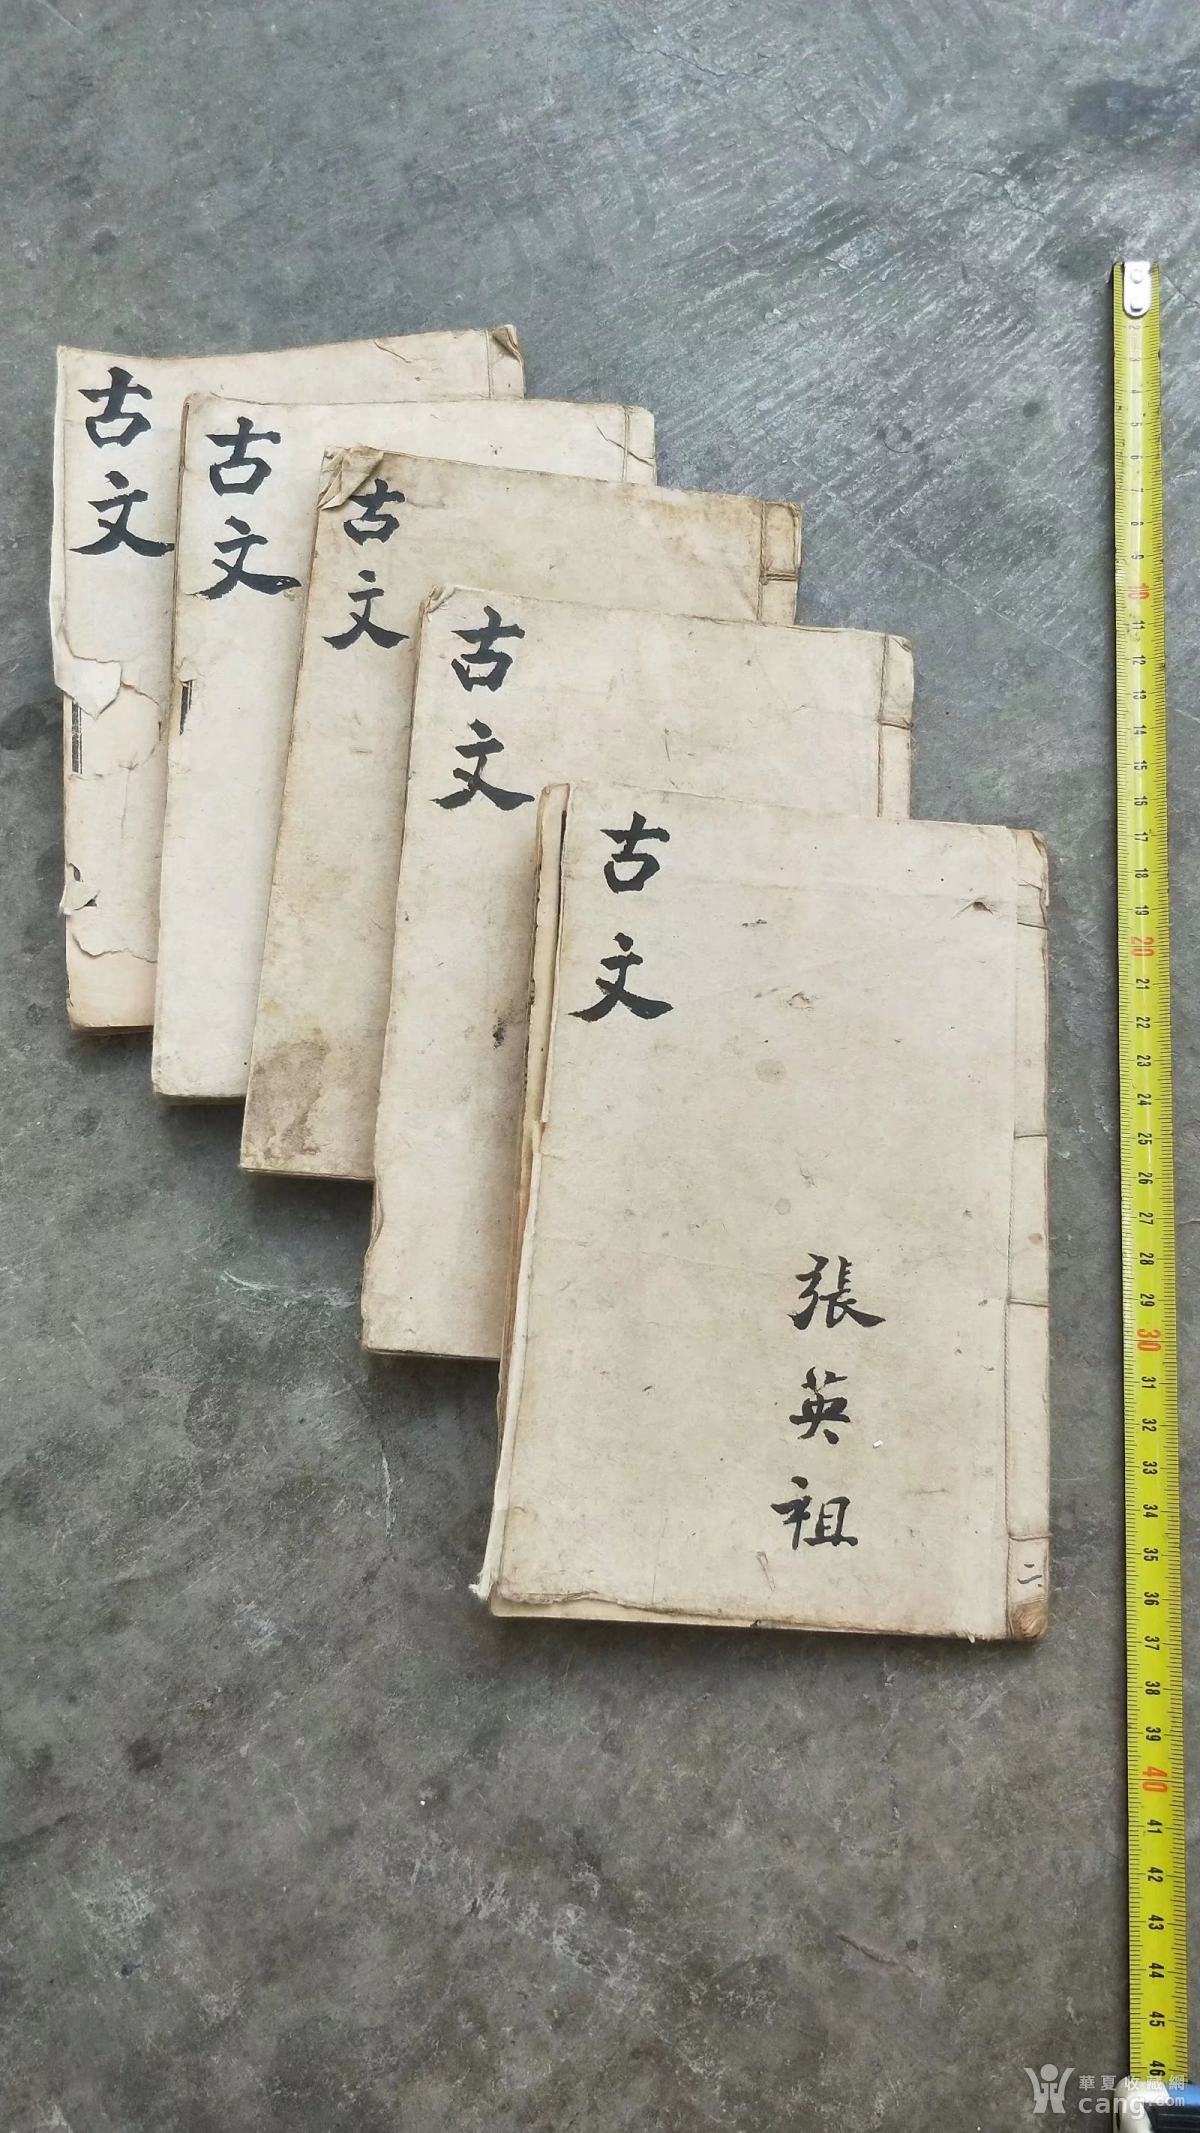 古文
古文
古文
古文
古文
張英祖
二
2
3
4
5
6
7
8
9
10
11
12
13
14
15
16
17
18
19
20
21
22
23
24
25
26
27
28
29
30
31
32
33
34
35
36
37
38
39
40
41
42
43
44
45
46
華夏收藏網
cang.com